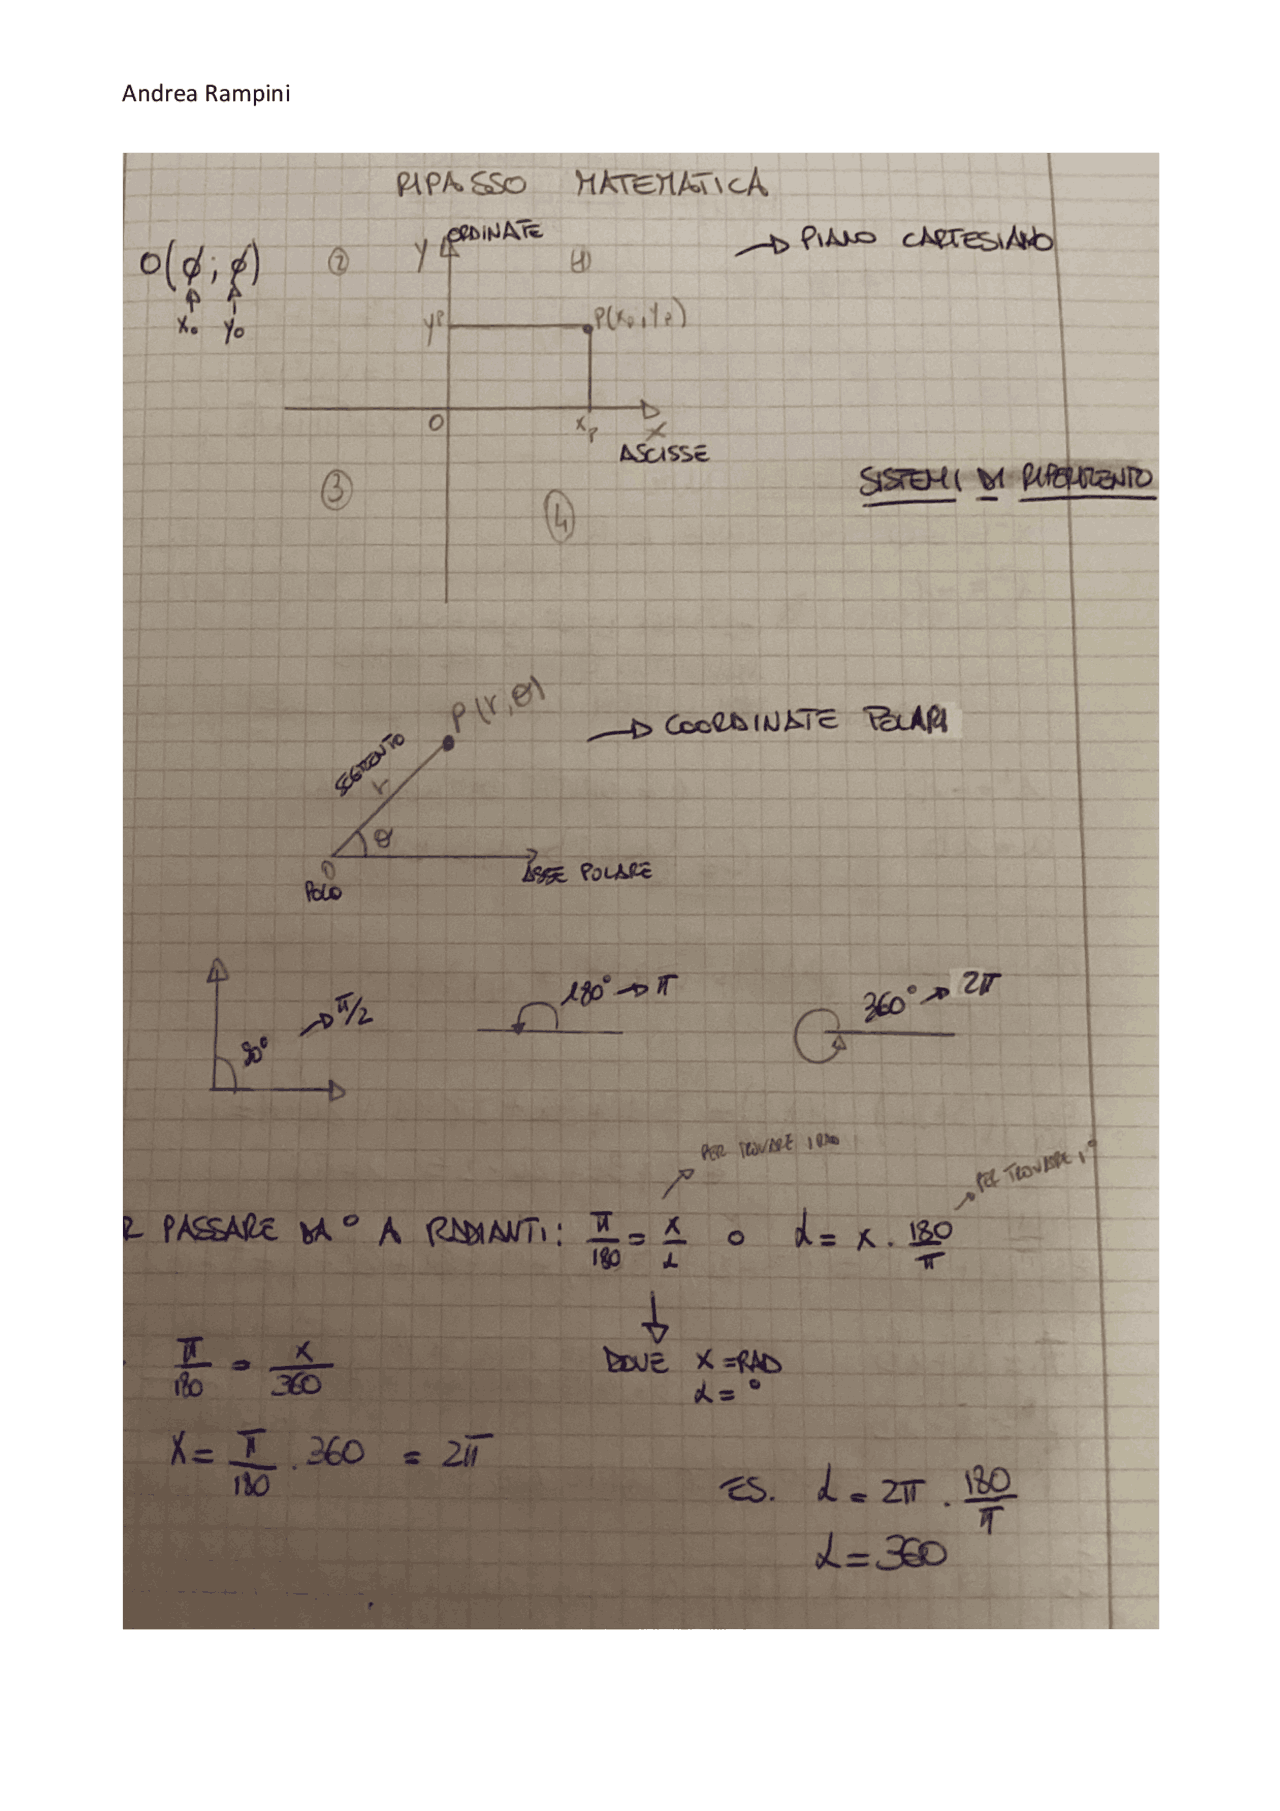 Andrea Rampini
RIPASSO MATEMATICA
O(ø; ø)
x₀ y₀
②
Y ORDINATE
①
→ PIANO CARTESIANO
yP
P(xₚ, yₚ)
O
xₚ
X
ASCISSE
③
④
SISTEMI DI RIFERIMENTO
P(r, θ)
SEGMENTO
r
θ
→ COORDINATE POLARI
O
POLO
ASSE POLARE
90° → π/2
180° → π
360° → 2π
PER TROVARE I RAD
PER TROVARE I °
R PASSARE DA ° A RADIANTI: π/180 = x/α o α = x · 180/π
π/180 = x/360
DOVE X = RAD
α = °
X = π/180 · 360 = 2π
ES. α = 2π · 180/π
α = 360